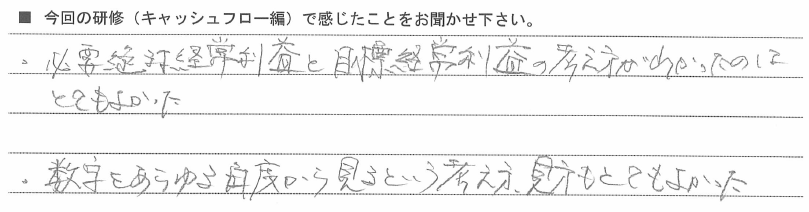 ■ 今回の研修（キャッシュフロー編）で感じたことをお聞かせ下さい。
・必要経常利益と目標経常利益の考え方がわかったのは
とてもよかった
・数字をあらゆる角度から見るという考え方、見方もとてもよかった